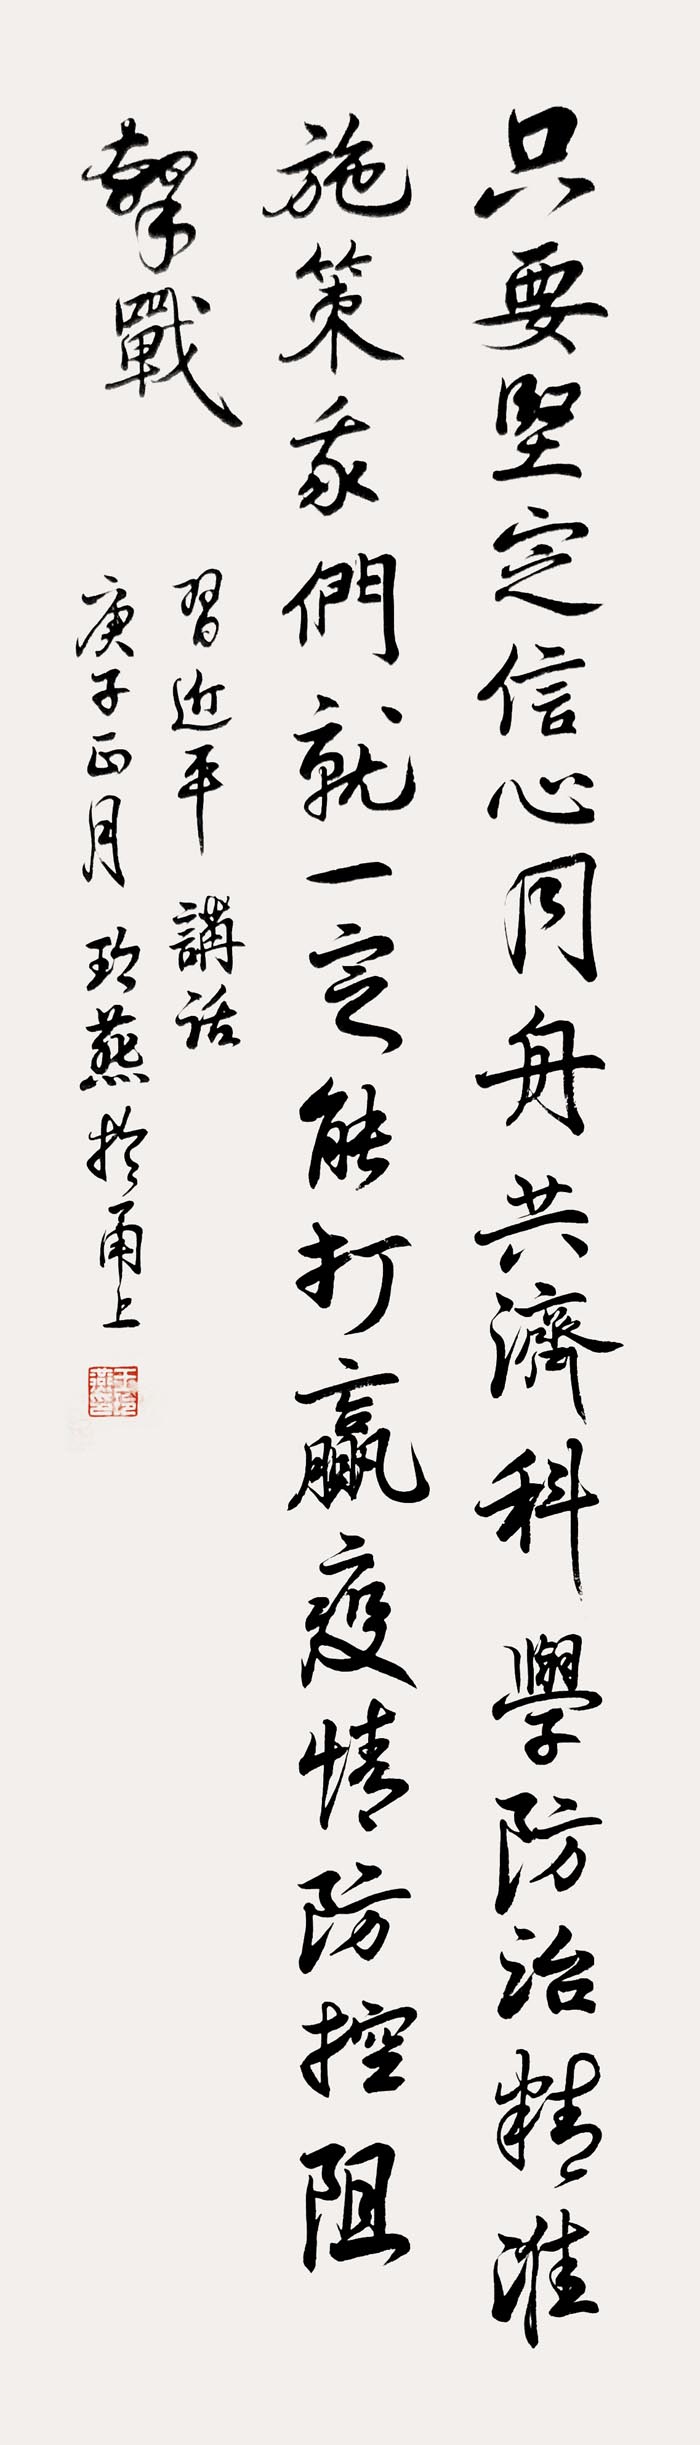 只要堅定信心同舟共濟科學防治精准
施策我們就一定能打贏疫情防控阻
擊戰
習近平 講話
庚子正月 玲燕於甬上
王玲燕印